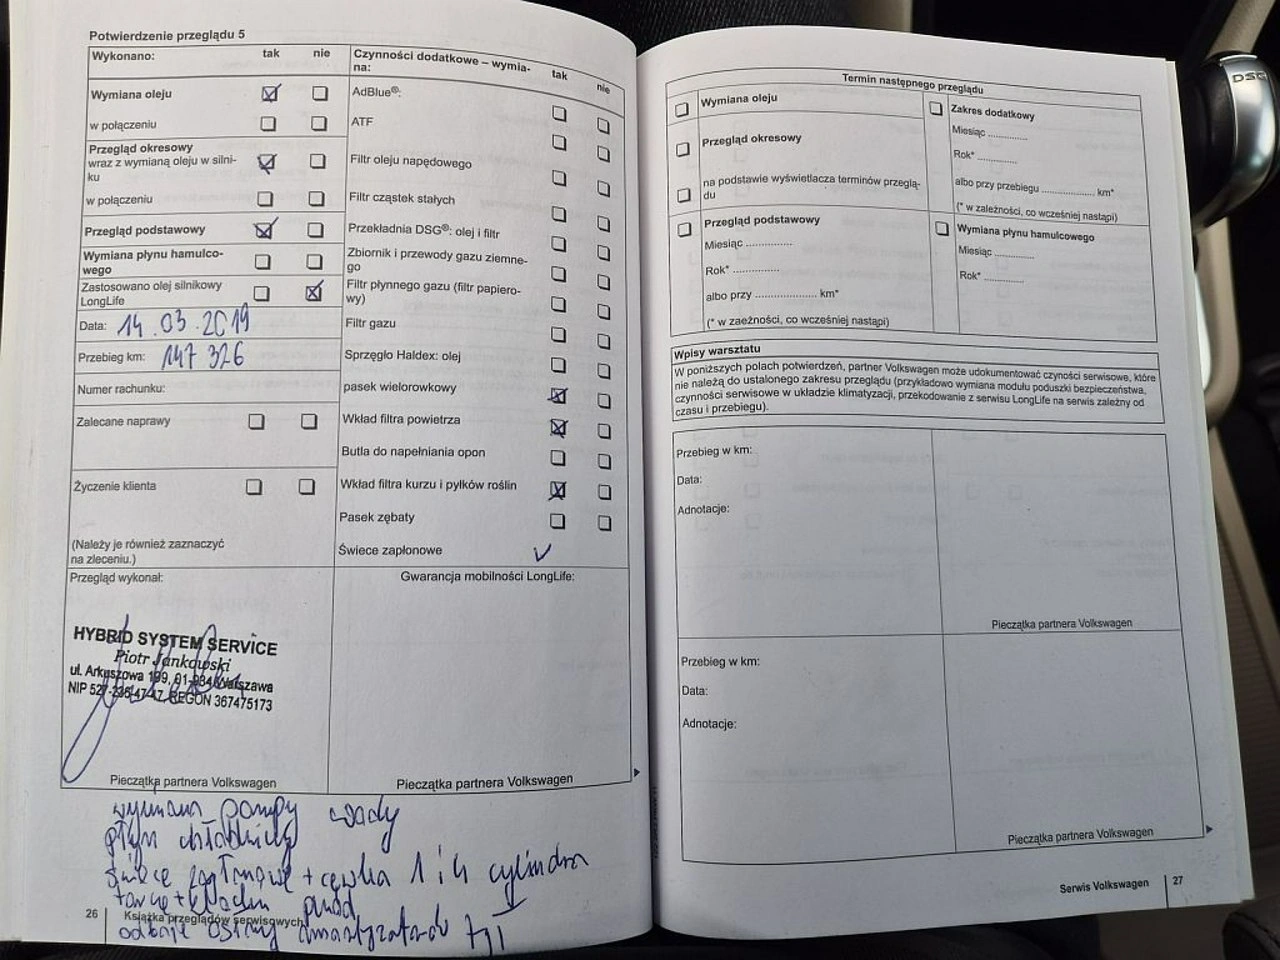 Potwierdzenie przeglądu 5
Wykonano: tak nie
Wymiana oleju
w połączeniu
Przegląd okresowy
wraz z wymianą oleju w silni-
ku
w połączeniu
Przegląd podstawowy
Wymiana płynu hamulco-
wego
Zastosowano olej silnikowy
LongLife
Data: 14.03.2019
Przebieg km: 147 326
Numer rachunku:
Zalecane naprawy
Życzenie klienta
(Należy je również zaznaczyć
na zleceniu.)
Czynności dodatkowe – wymia-
na: tak nie
AdBlue®:
ATF
Filtr oleju napędowego
Filtr cząstek stałych
Przekładnia DSG®: olej i filtr
Zbiornik i przewody gazu ziemne-
go
Filtr płynnego gazu (filtr papiero-
wy)
Filtr gazu
Sprzęgło Haldex: olej
pasek wielorowkowy
Wkład filtra powietrza
Butla do napełniania opon
Wkład filtra kurzu i pyłków roślin
Pasek zębaty
Świece zapłonowe
Przegląd wykonał:
HYBRID SYSTEM SERVICE
Piotr Jankowski
ul. Arkuszowa 199, 01-934 Warszawa
NIP 527-235-47-47, REGON 367475173
Pieczątka partnera Volkswagen
Gwarancja mobilności LongLife:
Pieczątka partnera Volkswagen
wymiana pompy wody
płyn chłodniczy
świece zapłonowe + cewka 1 i 4 cylindra
tarcze + klocki przód
osłony amortyzatorów
26 Książka przeglądów serwisowych
Termin następnego przeglądu
Wymiana oleju
Przegląd okresowy
na podstawie wyświetlacza terminów przeglą-
du
Przegląd podstawowy
Miesiąc ...............
Rok* ...............
albo przy .................... km*
(* w zaeżności, co wcześniej nastąpi)
Zakres dodatkowy
Miesiąc .............
Rok* .............
albo przy przebiegu .................. km*
(* w zależności, co wcześniej nastąpi)
Wymiana płynu hamulcowego
Miesiąc .............
Rok* .............
Wpisy warsztatu
W poniższych polach potwierdzeń, partner Volkswagen może udokumentować czyności serwisowe, które
nie należą do ustalonego zakresu przeglądu (przykładowo wymiana modułu poduszki bezpieczeństwa,
czynności serwisowe w układzie klimatyzacji, przekodowanie z serwisu LongLife na serwis zależny od
czasu i przebiegu).
Przebieg w km:
Data:
Adnotacje:
Pieczątka partnera Volkswagen
Przebieg w km:
Data:
Adnotacje:
Pieczątka partnera Volkswagen
Serwis Volkswagen 27
DSG